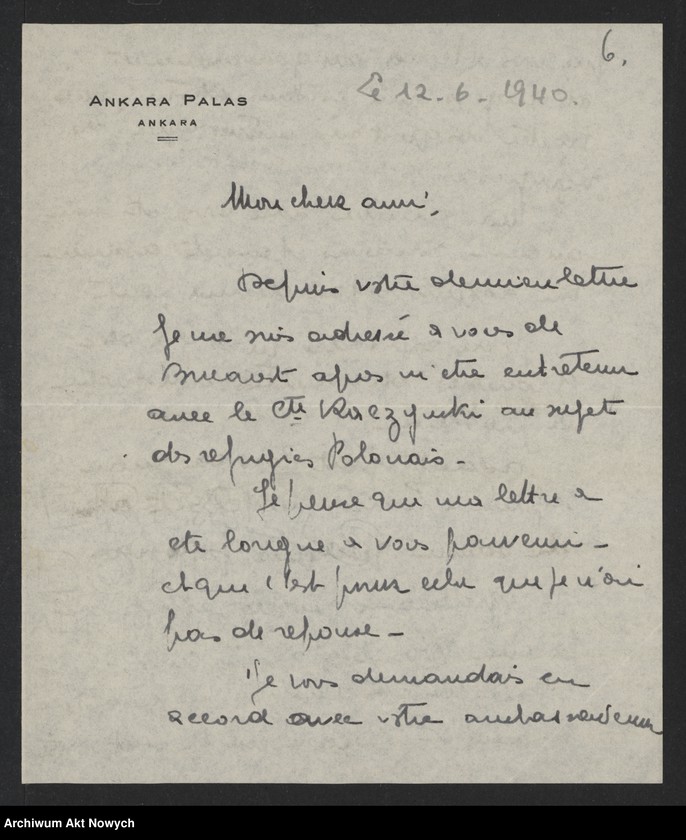 6.
ANKARA PALAS
ANKARA
Le 12-6-1940.
Mon cher ami,
Depuis votre dernier lettre
Je me suis adressé a vous de
Bucarest apres m'etre entretenu
avec le Cte Raczynski au sujet
des refugies Polonais -
Je pense que ma lettre a
ete longue a vous parvenir -
et que c'est pour cela que je n'ai
pas de reponse -
Je vous demandais en
accord avec votre ambassadeur
Archiwum Akt Nowych